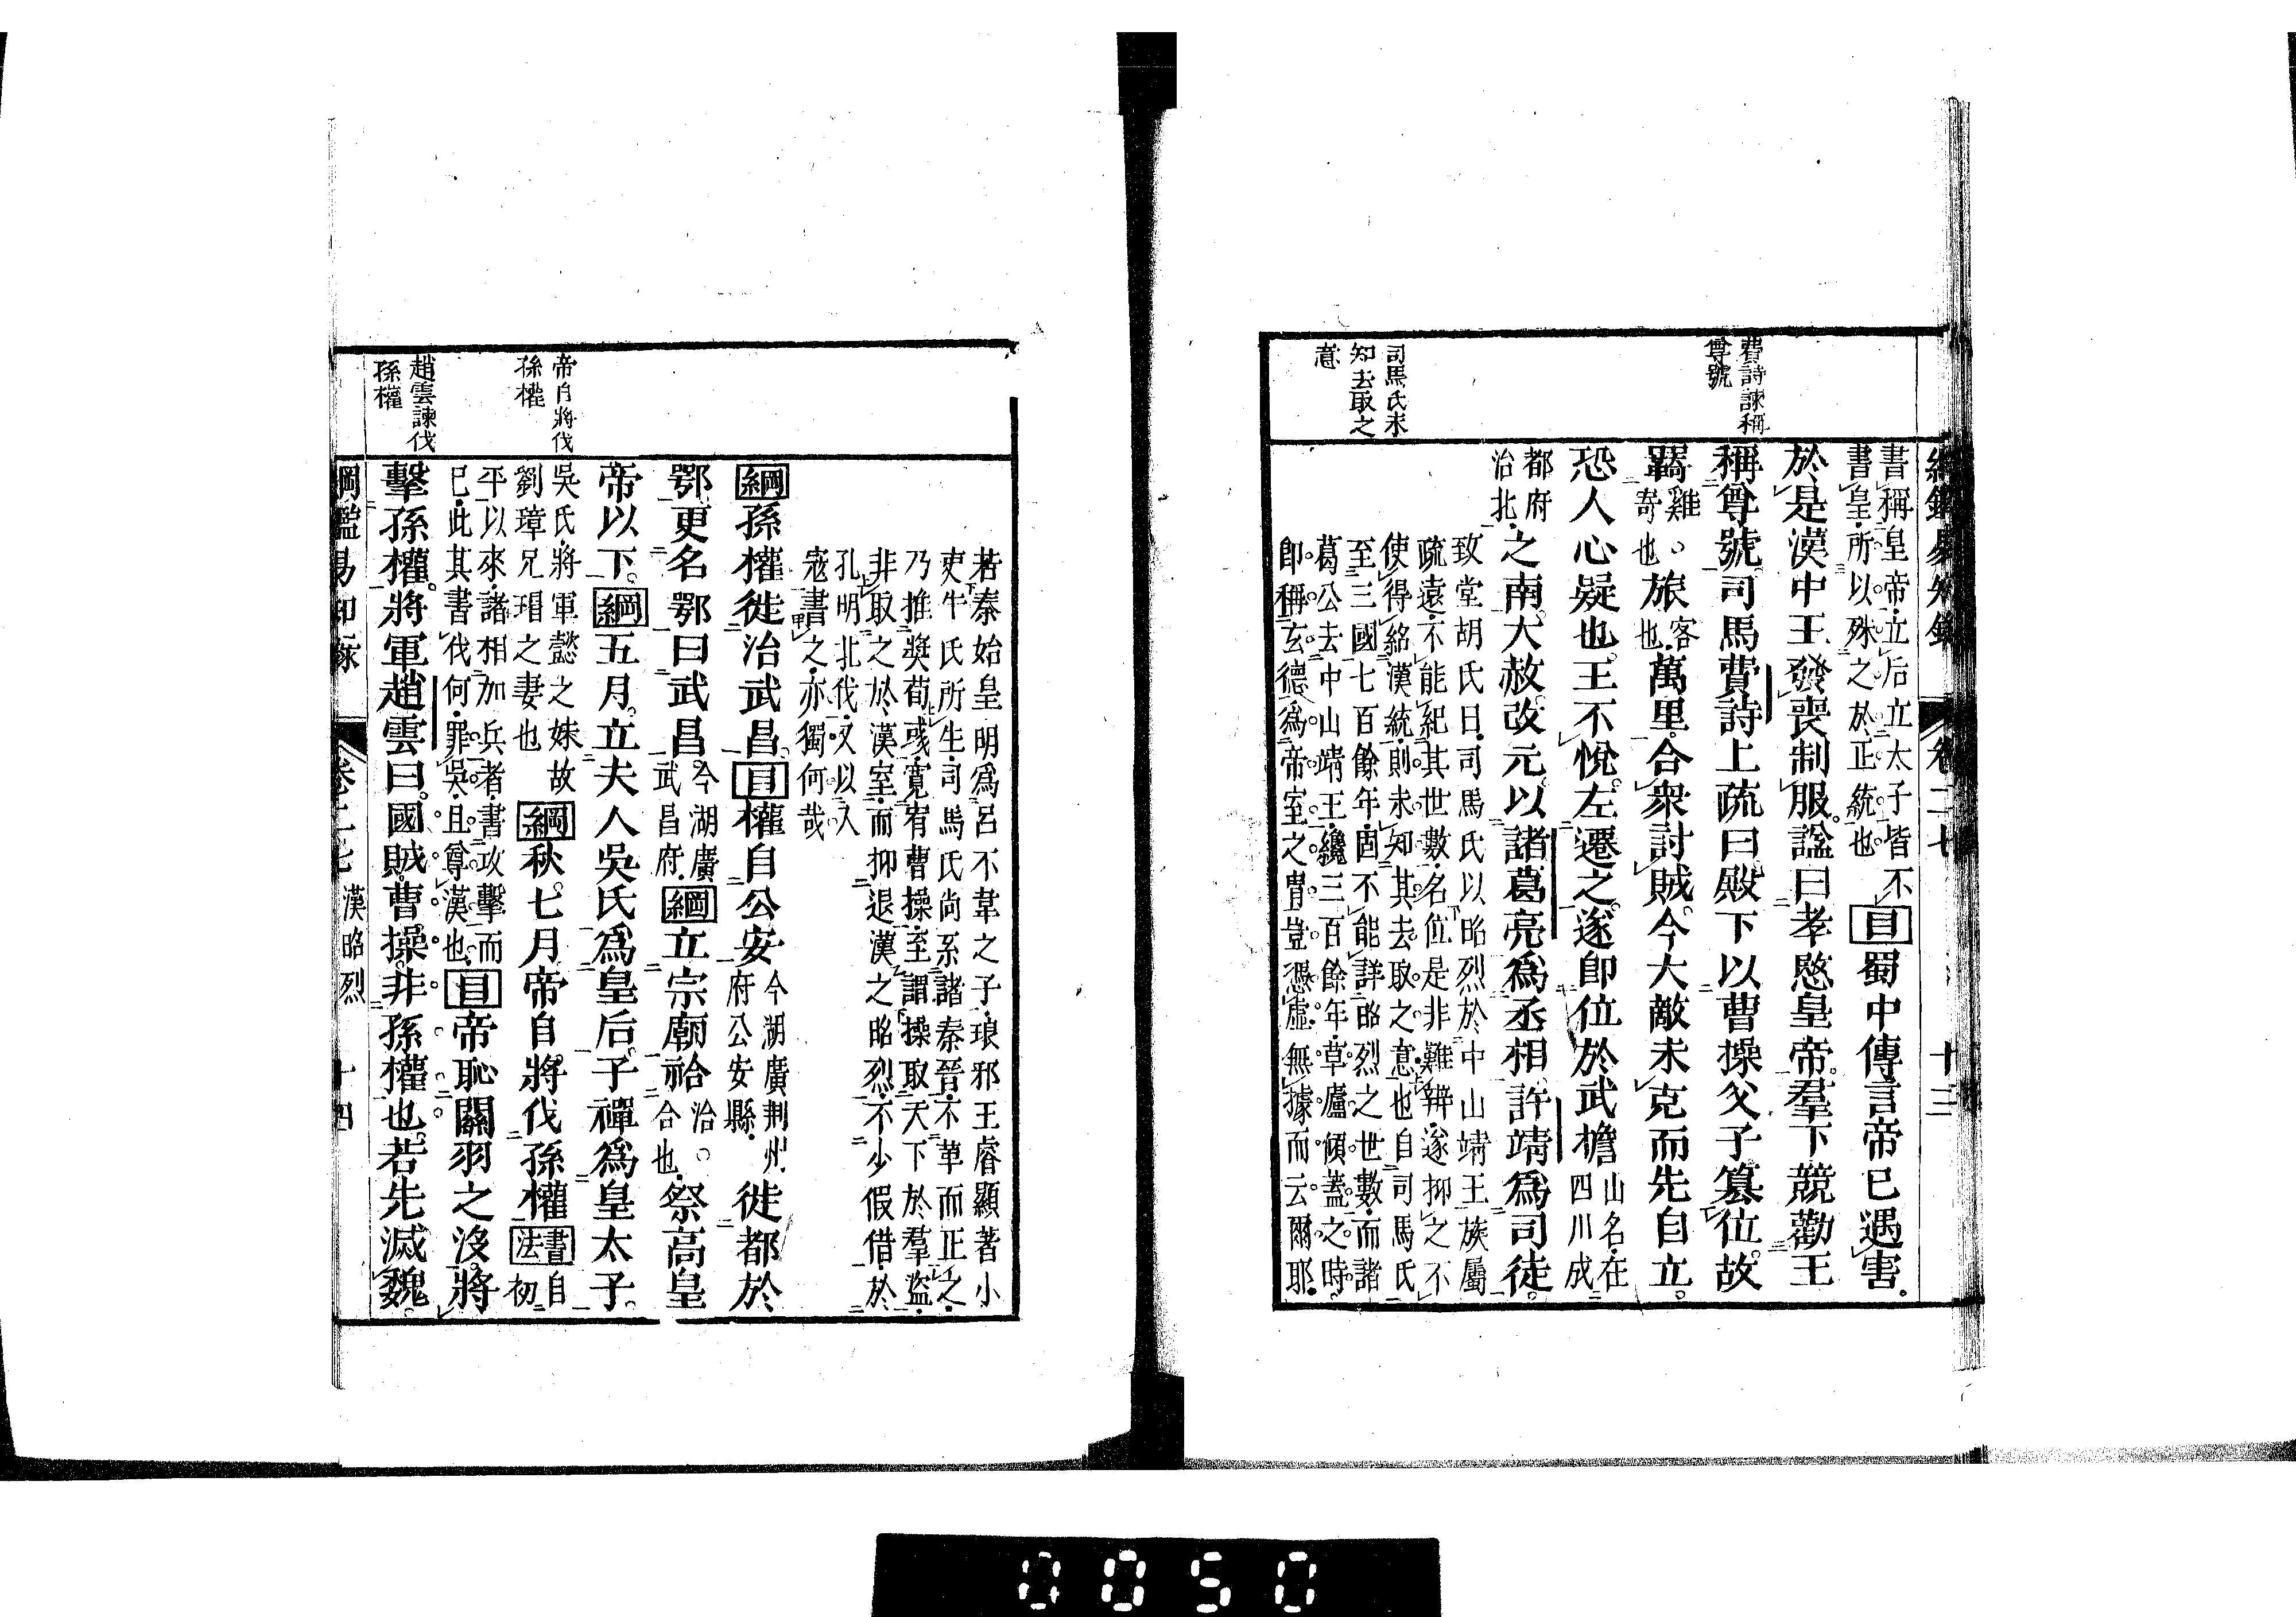 綱鑑易知錄 卷二七 十三
費詩諫稱
尊號
司馬氏未
知去取之
意
書稱皇帝立后立太子皆不
書皇所以殊之於正統也
目蜀中傳言帝已遇害
於是漢中王發喪制服諡曰孝愍皇帝羣下競勸王
稱尊號司馬費詩上疏曰殿下以曹操父子篡位故
羈
雞
奇也
旅
客
也
萬里合衆討賊今大敵未克而先自立
恐人心疑也王不悅左遷之遂卽位於武擔
山名在
四川成
都府
治北
之南大赦改元以諸葛亮爲丞相許靖爲司徒
致堂胡氏曰司馬氏以昭烈於中山靖王族屬
疏遠不能紀其世數名位是非難辨遂抑之不
使得紹漢統則未知其去取之意也自司馬氏
至三國七百餘年固不能詳昭烈之世數而諸
葛公去中山靖王纔三百餘年草廬傾蓋之時
卽稱玄德爲帝室之胄豈憑虛無據而云爾耶
若秦始皇明爲呂不韋之子琅邪王睿顯著小
吏牛氏所生司馬氏尚系諸秦晉不革而正之
乃推獎荀彧寬宥曹操至謂操取天下於羣盜
非取之於漢室而抑退漢之昭烈不少假借於
孔明北伐又以入
寇書之亦獨何哉
綱孫權徙治武昌目權自公安
今湖廣荆州
府公安縣
徙都於
鄂更名鄂曰武昌
今湖廣
武昌府
綱立宗廟祫
治
合也
祭高皇
帝以下綱五月立夫人吳氏爲皇后子禪爲皇太子
吳氏將軍懿之妹故
劉璋兄瑁之妻也
綱秋七月帝自將伐孫權
書法
自
初
平以來諸相加兵者書攻擊而
已此其書伐何罪吳且尊漢也
目帝恥關羽之沒將
擊孫權將軍趙雲曰國賊曹操非孫權也若先滅魏
帝自將伐
孫權
趙雲諫伐
孫權
綱鑑易知錄 卷二七 漢昭烈 十四
0050